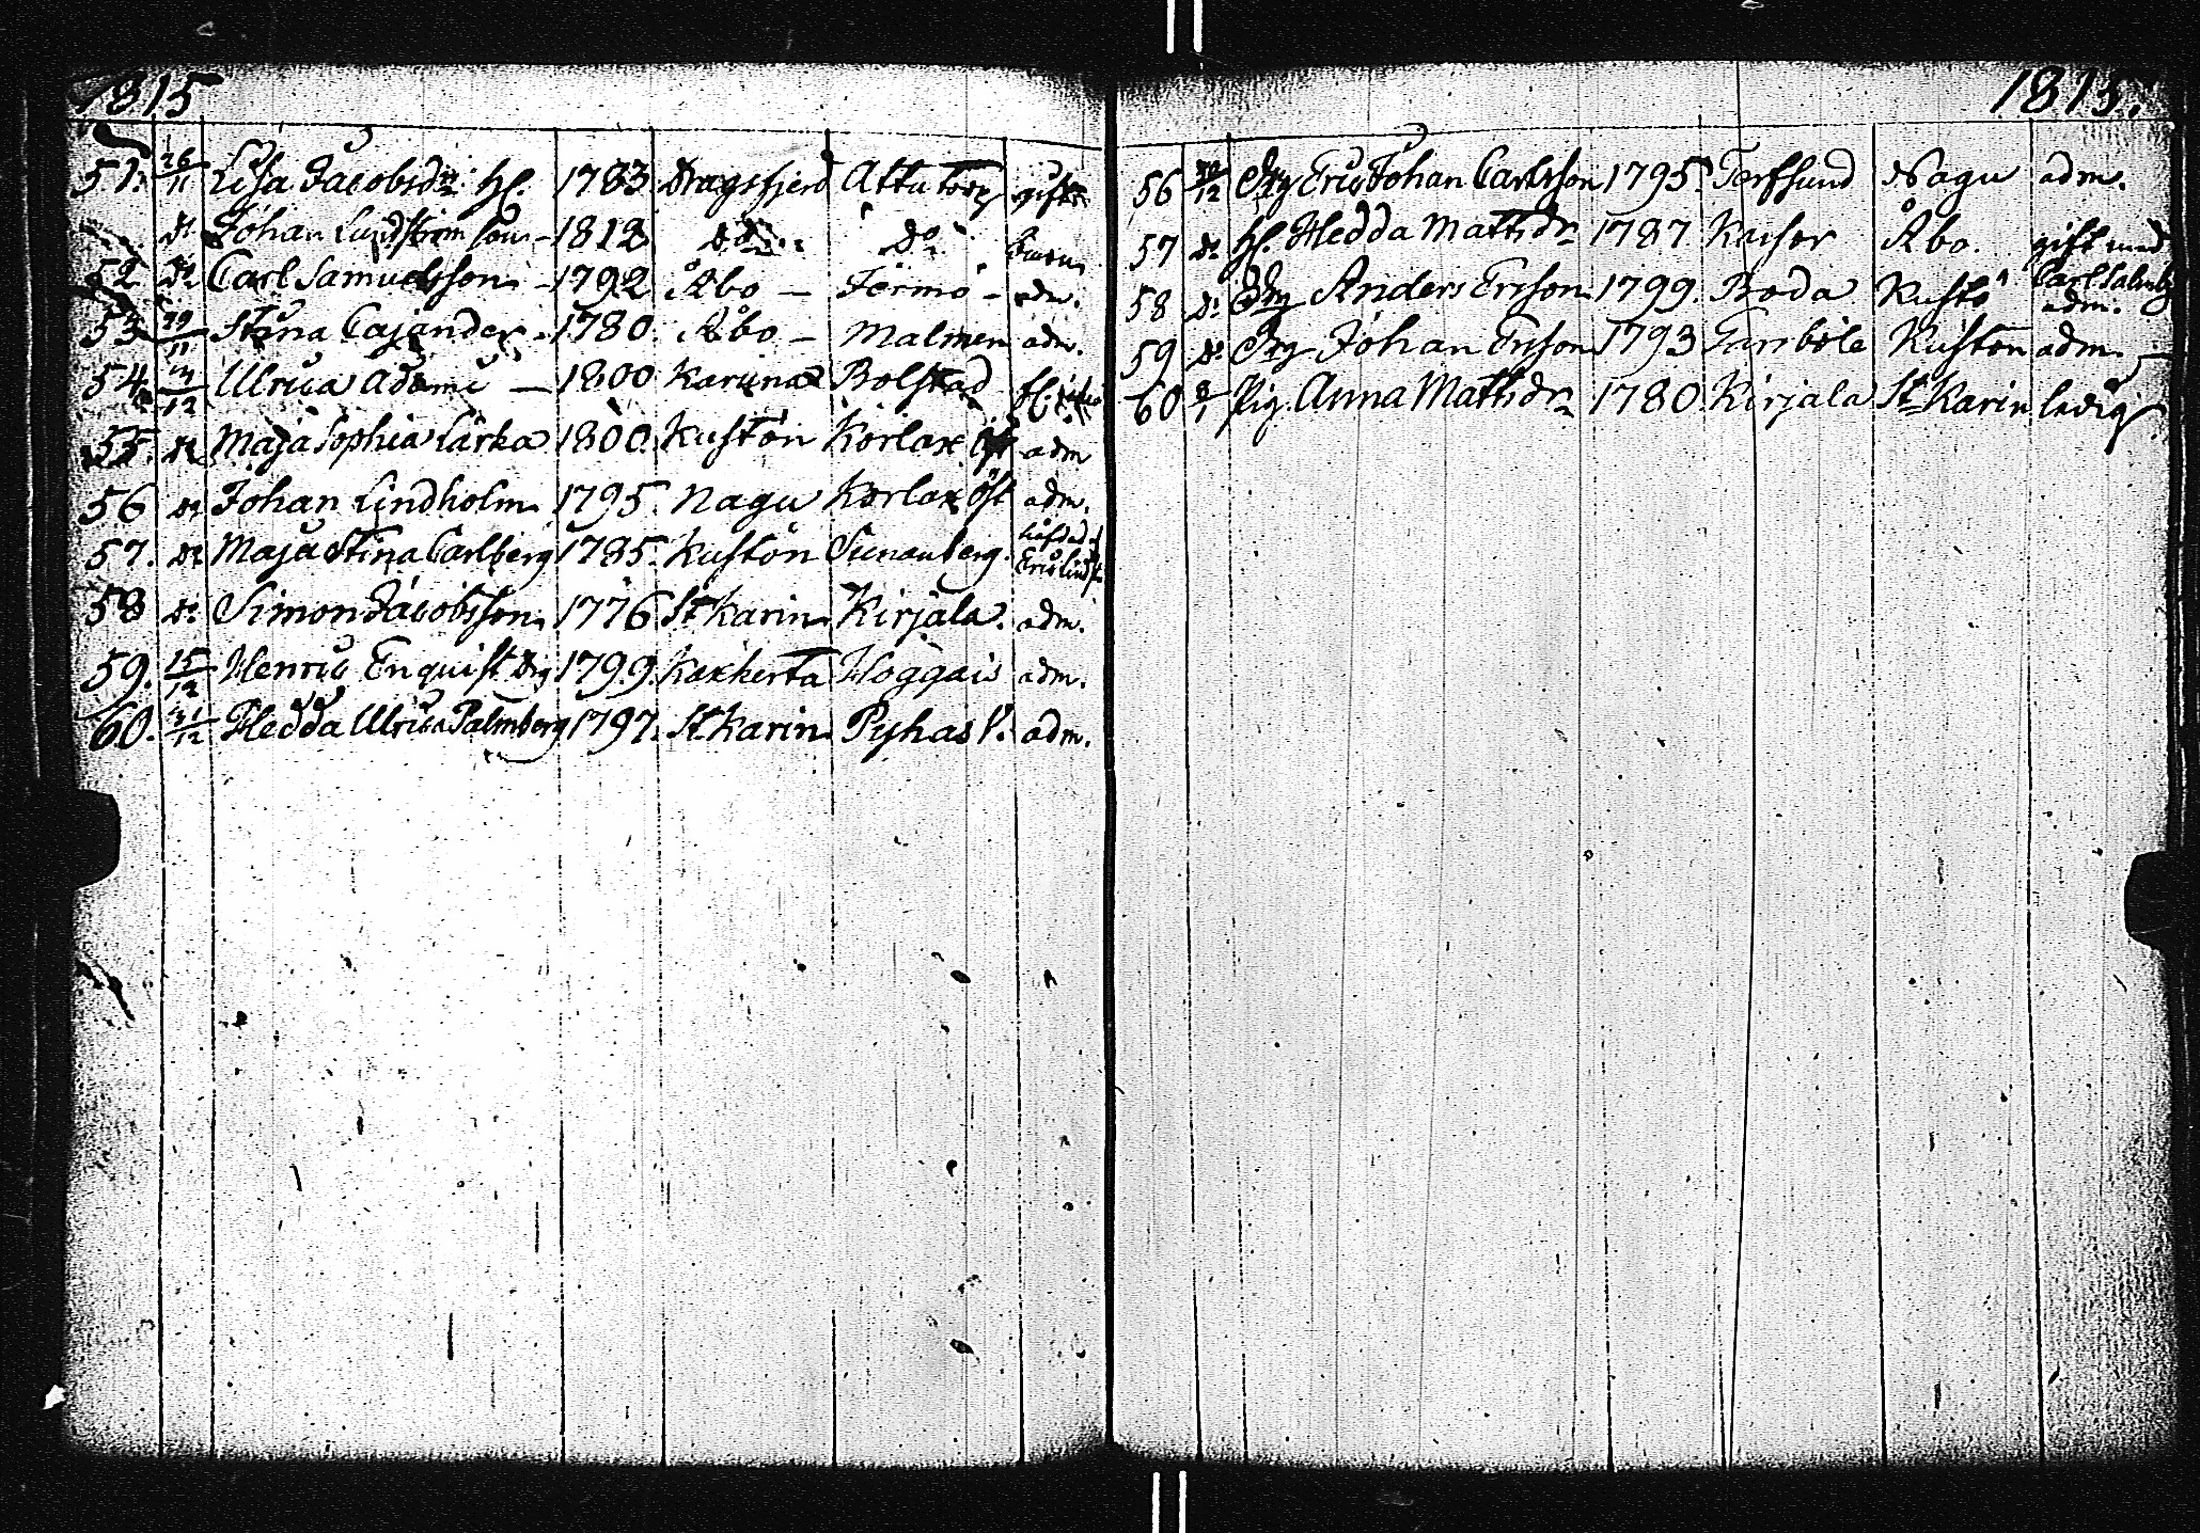 1815
51. 26/11 Lisa Jacobsdr. Hl. 1783 Dragsfjerd Attu torp gift
do Johan Lundström son - 1812 do do
52 do Carl Samuelsson - 1792 Åbo - Jermo - adm.
53 29/11 Stina Cajander - 1780. Åbo - Malmen adm.
54 14/12 Ulrica Adami - 1800 Karuna Bolstad
55. do Maja Sophia Lärka 1800. Kustön Korlax öst adm
56 do Johan Lindholm 1795. Nagu Korlax öst adm.
57. do Maja Stina Carlberg 1785. Kustön Sunnanberg. häfdad af Eric
58 do Simon Jacobsson 1776 St Karin Kirjala. adm.
59. 15/12 Henric Enquist drg 1799. Kakskerta Hoggais adm.
60. 31/12 Hedda Ulrica Palmberg 1797. St. Karin Pyhas V. adm.
1815.
56 30/12 Drg Eric Johan Carlsson 1795. Terfsund Nagu adm.
57 do Hl. Hedda Mattsdr 1787 Kusor Åbo. gift med Carl
58 do Drg Anders Ersson 1799. Boda Kustö adm.
59 do Drg Johan Ersson 1793 Garsböle Kustön adm.
60 8/1 Pig. Anna Mattsdr 1780. Kirjala St Karin ledig